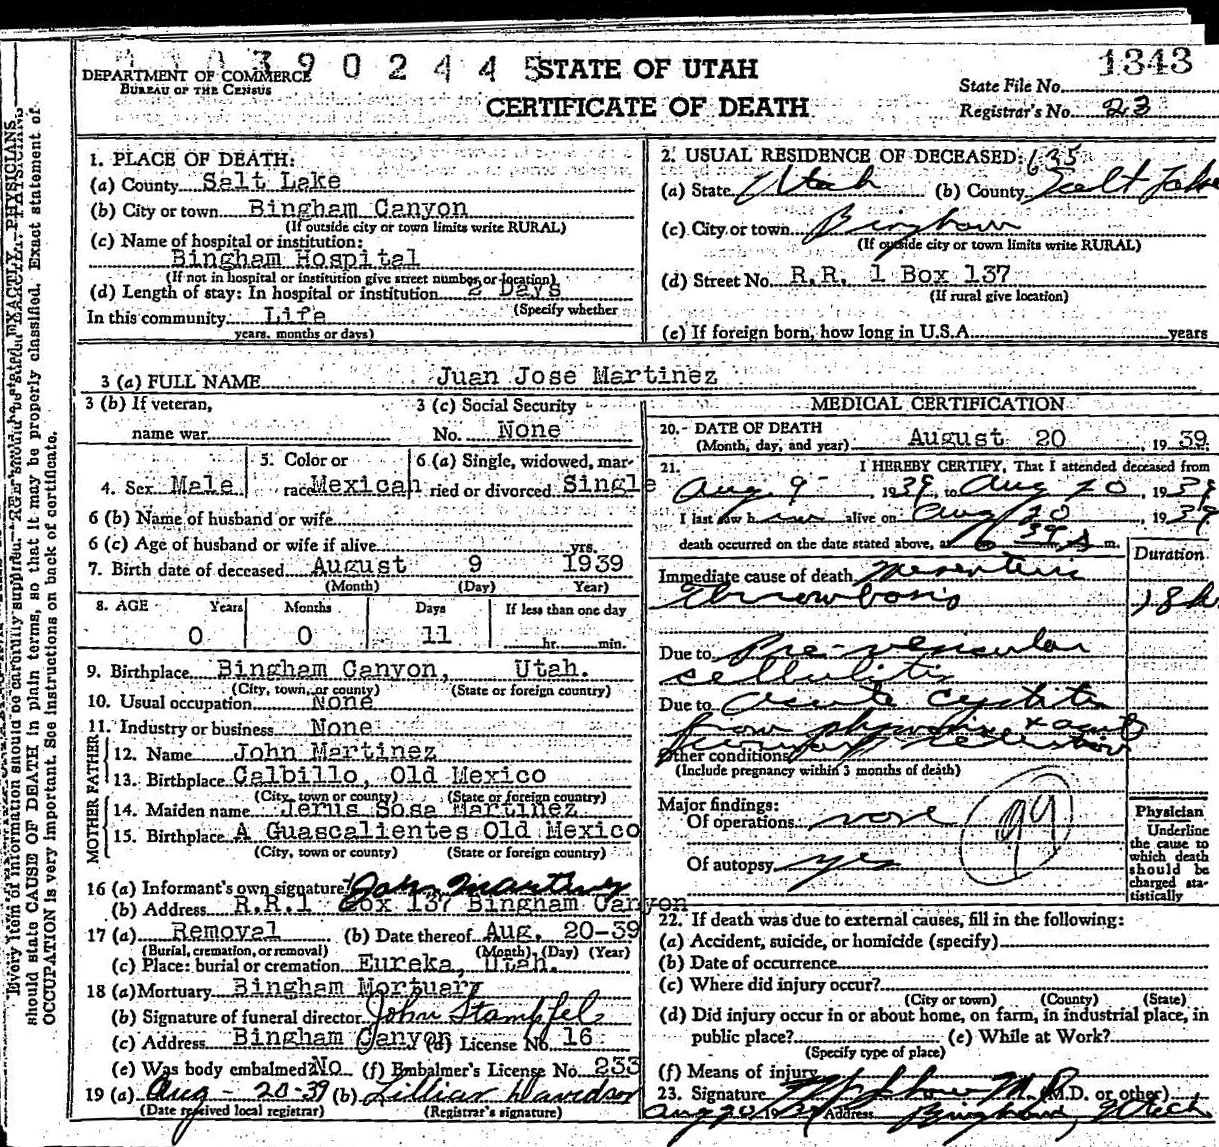 3902445
DEPARTMENT OF COMMERCE
BUREAU OF THE CENSUS
STATE OF UTAH
CERTIFICATE OF DEATH
1343
State File No.
Registrar's No. 23
Every item of information should be carefully supplied. AGE should be stated EXACTLY. PHYSICIANS
should state CAUSE OF DEATH in plain terms, so that it may be properly classified. Exact statement of
OCCUPATION is very important. See instructions on back of certificate.
1. PLACE OF DEATH:
(a) County Salt Lake
(b) City or town Bingham Canyon
(If outside city or town limits write RURAL)
(c) Name of hospital or institution:
Bingham Hospital
(If not in hospital or institution give street number or location)
(d) Length of stay: In hospital or institution 2 Days
(Specify whether
In this community Life
years, months or days)
2. USUAL RESIDENCE OF DECEASED: 635
(a) State Utah (b) County Salt Lake
(c) City or town Bingham
(If outside city or town limits write RURAL)
(d) Street No. R.R. 1 Box 137
(If rural give location)
(e) If foreign born, how long in U.S.A. years
3 (a) FULL NAME Juan Jose Martinez
3 (b) If veteran,
name war
3 (c) Social Security
No. None
4. Sex Male
5. Color or
race Mexican
6 (a) Single, widowed, mar-
ried or divorced Single
6 (b) Name of husband or wife
6 (c) Age of husband or wife if alive yrs.
7. Birth date of deceased August 9 1939
(Month) (Day) Year)
8. AGE Years Months Days If less than one day
0 0 11 hr. min.
9. Birthplace Bingham Canyon, Utah.
(City, town, or county) (State or foreign country)
10. Usual occupation None
11. Industry or business None
FATHER
12. Name John Martinez
13. Birthplace Calbillo, Old Mexico
(City, town or county) (State or foreign country)
MOTHER
14. Maiden name Jerus Sosa Martinez
15. Birthplace A Guascalientes Old Mexico
(City, town or county) (State or foreign country)
16 (a) Informant's own signature John Martinez
(b) Address R.R.1 Box 137 Bingham Canyon
17 (a) Removal (b) Date thereof Aug. 20-39
(Burial, cremation, or removal) (Month) (Day) (Year)
(c) Place: burial or cremation Eureka, Utah.
18 (a) Mortuary Bingham Mortuary
(b) Signature of funeral director John Stampfel
(c) Address Bingham Canyon (d) License No. 16
(e) Was body embalmed? No (f) Embalmer's License No. 233
19 (a) Aug - 20-39 (b) Lillian Davidson
(Date received local registrar) (Registrar's signature)
MEDICAL CERTIFICATION
20. DATE OF DEATH
(Month, day, and year) August 20, 1939
21. I HEREBY CERTIFY, That I attended deceased from
Aug 9 1939, to Aug 20, 1939
I last saw him alive on Aug 20, 1939
death occurred on the date stated above, at 6 39 A m.
Duration
Immediate cause of death Mesenteric
Thrombosis 18 h
Due to Pre-vesicular
cellulitis
Due to acute cystitis
from phymosis & acute
urinary retention
Other conditions
(Include pregnancy within 3 months of death)
Major findings:
Of operations none
Of autopsy yes
99
Physician
Underline
the cause to
which death
should be
charged sta-
tistically
22. If death was due to external causes, fill in the following:
(a) Accident, suicide, or homicide (specify)
(b) Date of occurrence
(c) Where did injury occur?
(City or town) (County) (State)
(d) Did injury occur in or about home, on farm, in industrial place, in
public place? (e) While at Work?
(Specify type of place)
(f) Means of injury
23. Signature M.D. (M.D. or other)
Aug 20 1939 Address Bingham, Utah